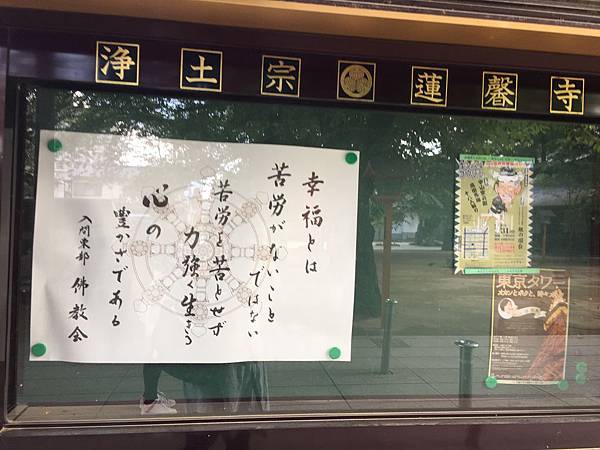 浄土宗 蓮馨寺
幸福とは
苦労がないこと
ではない
苦労を苦とせず
力強く生きる
心の
豊かさである
入間東部 佛教会
東京タワー